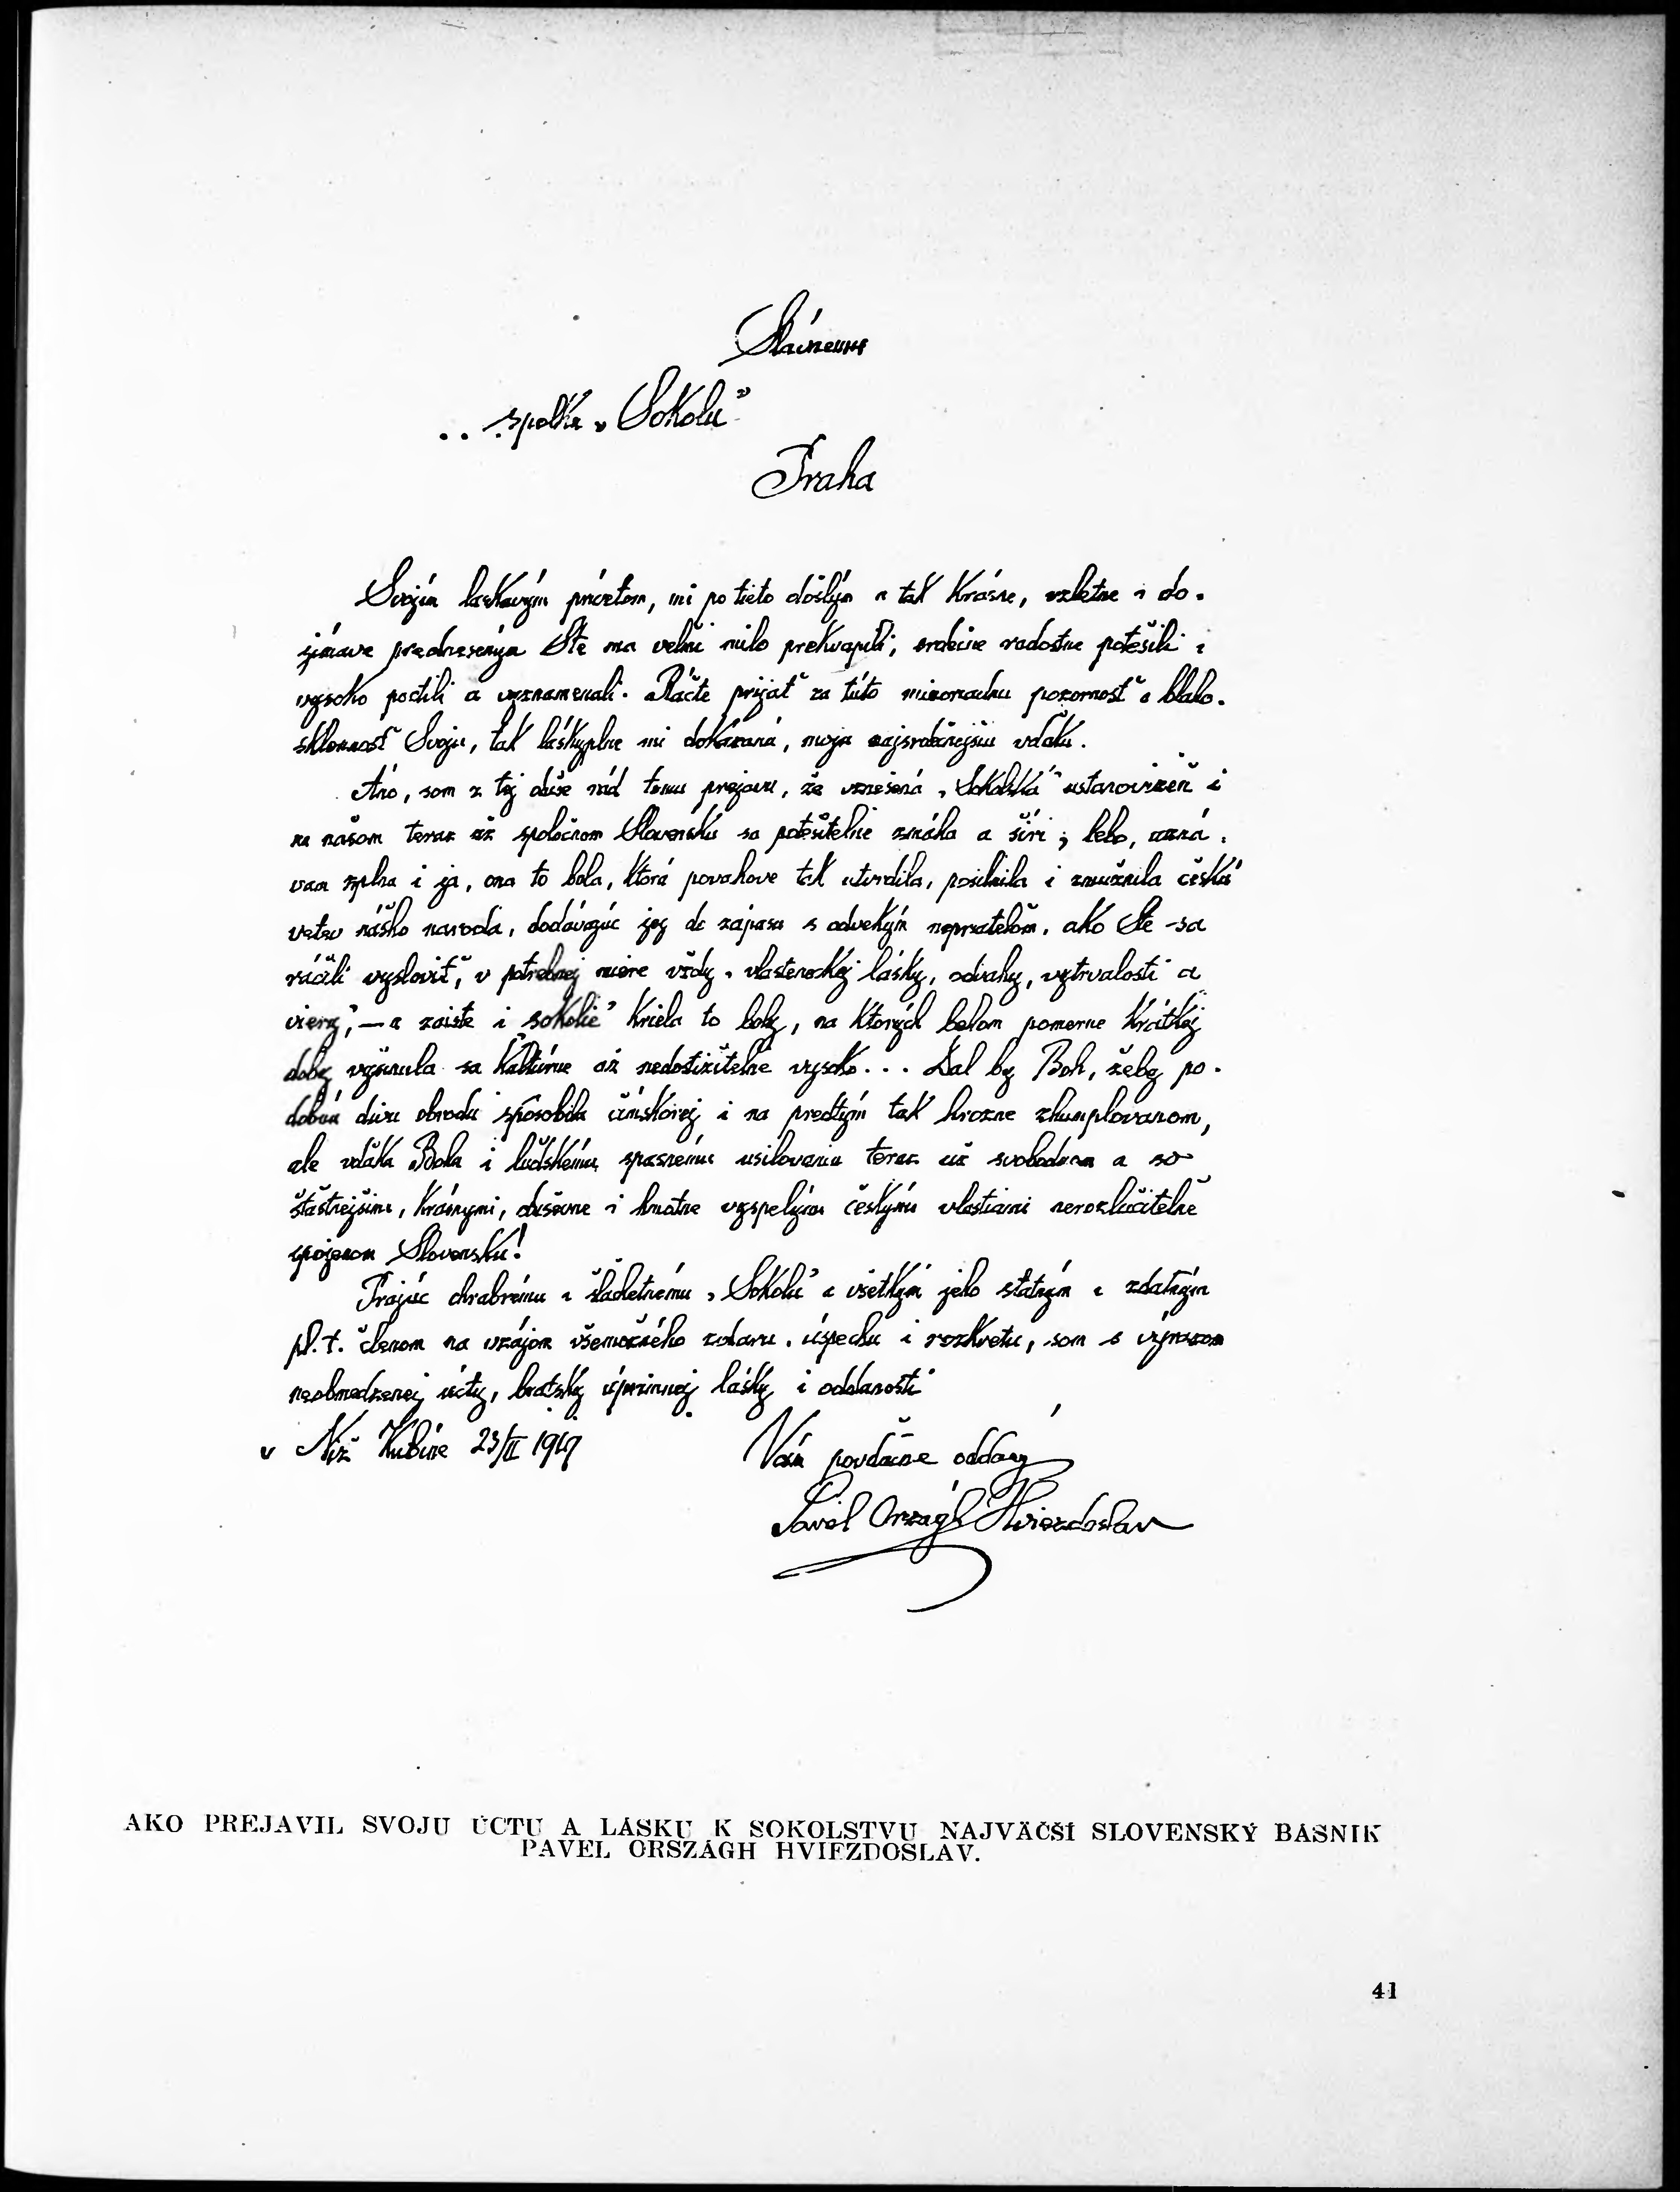 Slávnemu
spolku „Sokolu”
Praha
Svojím laskavým prívetom, mi po tieto došlým a tak krásne, vzletne i do-
jímave predneseným Ste ma veľmi milo prekvapili, srdečne radostne potešili i
vysoko poctili a vyznamenali. Ráčte prijať za túto mimoriadnu pozornosť a blaho-
sklonnosť Svoju, tak láskyplne mi dokázanú, moju najsrdečnejšiu vďaku.
Áno, som z tej duše rád tomu prejavu, že vznešená „Sokolská” ustanovizeň i
na našom teraz už spoločnom Slovensku sa potešiteľne zmáha a šíri; lebo, uzná-
vam zplna i ja, ona to bola, ktorá povahove tak utvrdila, posilnila i zmužnila českú
vetev nášho naroda, dodávajúc jej do zápasu s odvekým nepriateľom, ako Ste sa
ráčili vysloviť, v potrebnej miere vždy „vlasteneckej lásky, odvahy, vytrvalosti a
viery”, — a zaiste i „sokolie” kriela to boly, na ktorých behom pomerne krátkej
doby vyšinula sa kultúrne až nedostižiteľne vysoko... Dal by Boh, žeby po-
dobnú divu obrodu sposobila čímskorej i na predtým tak hrozne zhumplovanom,
ale vďaka Bohu i ľudskému spasnému usilovaniu teraz už svobodnom a so
šťastnejšími, krásnymi, duševne i hmotne vyspelými českými vlastiami nerozlučiteľne
spojenom Slovensku!
Prajúc chrabrému a šľachetnému „Sokolu” a všetkým jeho statným a zdatným
p. t. členom na vzájom všemožného zdaru, úspechu i rozkvetu, som s výrazom
neobmedzenej úcty, bratsky úprimnej lásky i oddanosti
v Niž. Kubíne 23/II 1919
Vám povďačne oddaný
Pavel Orszägh Hviezdoslav
AKO PREJAVIL SVOJU ÚCTU A LÁSKU K SOKOLSTVU NAJVÄČŠÍ SLOVENSKÝ BÁSNIK
PAVEL ORSZÁGH HVIEZDOSLAV.
41